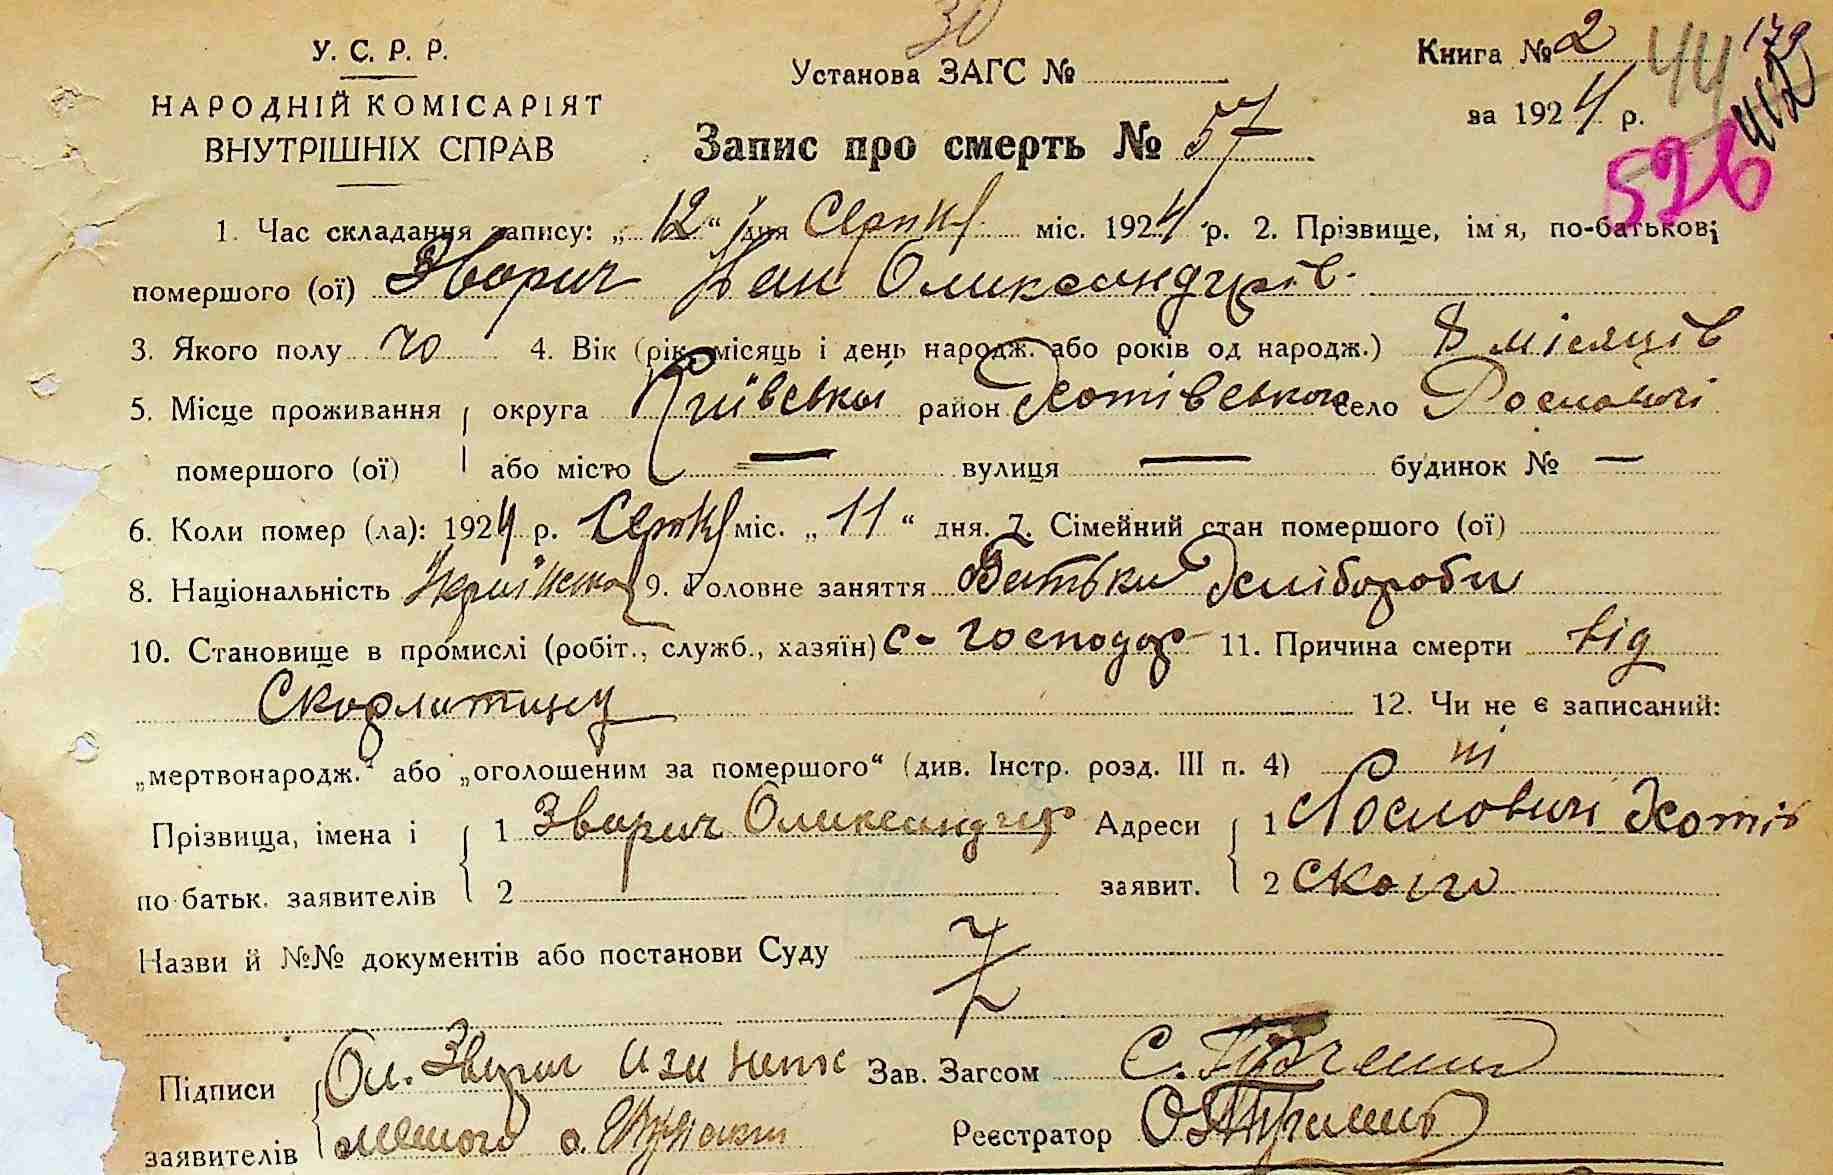 30
У. С. Р. Р.
НАРОДНІЙ КОМІСАРІЯТ
ВНУТРІШНІХ СПРАВ
Установа ЗАГС №
Книга № 2
44
179
412
за 1924 р.
526
Запис про смерть № 57
1. Час складання запису: „12“ дня Серпня міс. 1924 р. 2. Прізвище, імя, по-батькові
помершого (ої) Зварич Іван Олександрів
3. Якого полу чо 4. Вік (рік, місяць і день народж. або років од народж.) 8 місяців
5. Місце проживання округа Київська район Хотівського село Рославичі
помершого (ої) або місто — вулиця — будинок № —
6. Коли помер (ла): 1924 р. Серпня міс. „11“ дня. 7. Сімейний стан помершого (ої)
8. Національність 9. Головне заняття Батьки хлібороби
10. Становище в промислі (робіт., служб., хазяїн) с-господар 11. Причина смерти від
Скорлатину 12. Чи не є записаний:
„мертвонародж.“ або „оголошеним за помершого“ (див. Інстр. розд. III п. 4) ні
Прізвища, імена і 1 Зварич Олександр Адреси 1 Рословичі Хотів
по батьк. заявителів 2 заявит. 2 ського
Назви й №№ документів або постанови Суду
Підписи Ол. Зварич Зав. Загсом С.
заявителів Реєстратор